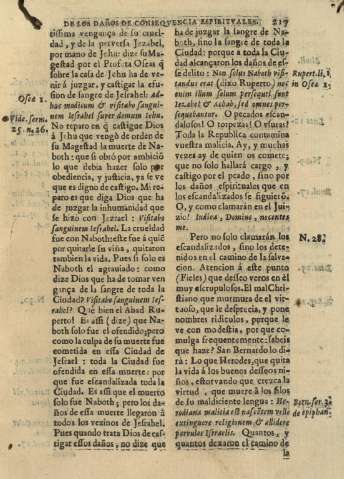 DE LOS DAÑOS DE CONSEQVENCIA ESPIRITVALES. 217
tissima vengança de su cruel
dad, y de la perversa Jezabel,
por mano de Jehu: dize su Ma
gestad por el Profeta Oseas q
sobre la casa de Jehu ha de ve
nir á juzgar, y castigar la efu
sion de sangre de Jesrahel: ad
huc modicum & visitabo sangui
nem Iesrahel super domum Iehu.
No reparo en q castigue Dios
á Jehu que vengó de orden de
su Magestad la muerte de Na
both: que si obró por ambició
lo que debia hazer solo por
obediencia, y justicia, ya se ve
que es digno de castigo. Mi re
paro es que diga Dios que ha
de juzgar la inhumanidad que
se hizo con Jezrael: Visitabo
sanguinem Iesrahel. La crueldad
fue con Naboth: este fue á quié
por quitarle su viña, quitaron
tambien la vida. Pues si solo es
Naboth el agraviado: como
dize Dios que ha de tomar ven
gança de la sangre de toda la
Ciudad? Visitabo sanguinem Ies
rahel? Que bien el Abad Ru
perto! Es assi (dize) que Na
both solo fue el ofendido; pero
como la culpa de su muerte fue
cometida en essa Ciudad de
Jesrael: toda la Ciudad fue
ofendida en essa muerte: por
que fue escandalizada toda la
Ciudad. Es assi que el muerto
solo fue Naboth; pero los da
ños de essa muerte llegaron á
todos los vezinos de Jesrahel.
Pues quando trata Dios de cas
tigar essos daños, no dize que
Osee 1.
Vide serm.
25. n. 26.
ha de juzgar la sangre de Na
both, sino la sangre de toda la
Ciudad: porque a toda la Ciu
dad alcançaron los daños de es
se delito: Non solus Naboth visi
tandus erat (dixo Ruperto) nec
enim illum solum persequuti sunt
Iezabel & Achab, sed omnes per
sequebantur. O pecados escan
dalosos! O torpezas! O vsuras!
Toda la Republica contamina
vuestra malicia. Ay, y muchas
vezes ay de quien os comete;
que no solo hallará cargo, y
castigo por el pecado, sino por
los daños espirituales que en
los escandalizados se siguieró.
O, y como clamarán en el Jui
zio! Iudica, Domine, nocentes
me.
Pero no solo clamarán los
escandalizados, sino los dete
nidos en el camino de la salva
cion. Atencion á este punto
(Fieles) que desseo veros en él
muy escrupulosos. El mal Chris
tiano que murmura de el vir
tuoso, que le desprecia, y pone
nombres ridiculos, porque le
ve con modestia, por que co
mulga frequentemente: sabeis
que haze? San Bernardo lo di
rá: Lo que Herodes, que quita
la vida á los buenos desseos ni
ños, estorvando que crezca la
virtud, que muere á los filos
de su maldiciente lengua: He
rodiana malicia est nascentem velle
extinguere religionem & allidere
parvulos Israelis. Quantos, y
quantos dexaron el camino de
la
Rupert. li. 1.
in Osee 2.
N. 28.
Bern. ser. 3.
de epiphan.